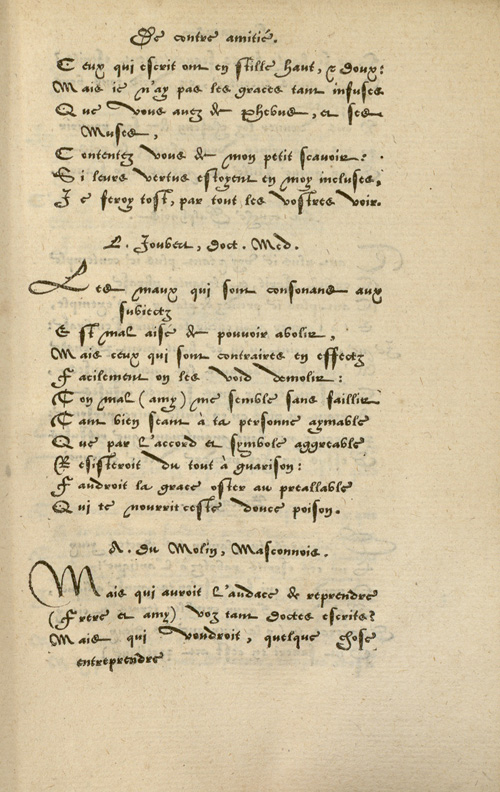 De contre amitié.
Ceux qui escrit ont en stille haut, & doux:
Mais ie n'ay pas les graces tant infuses
Que vous auez de Phebus, et ses
Muses,
Contentez vous de mon petit scauoir:
Si leurs vertus estoyent en moy incluses,
Ie feroy tost, par tout les vostres voir.
L. Joubert, Doct. Med.
Les maux qui sont consonans aux
subiectz
Est mal aise de pouuoir abolir,
Mais ceux qui sont contraires en effectz
Facilement on les void demolir:
Ton mal (amy) me semble sans faillir
Tant bien seant à ta personne aymable
Que par l'accord et symbole aggreable
Resisteroit du tout à guarison:
Faudroit la grace oster au preallable
Qui te nourrit ceste douce poison.
A. du Molin, Masconnois.
Mais qui auroit l'audace de reprendre
(Frere et amy) voz tant doctes escrits?
Mais qui voudroit, quelque chose
entreprendre